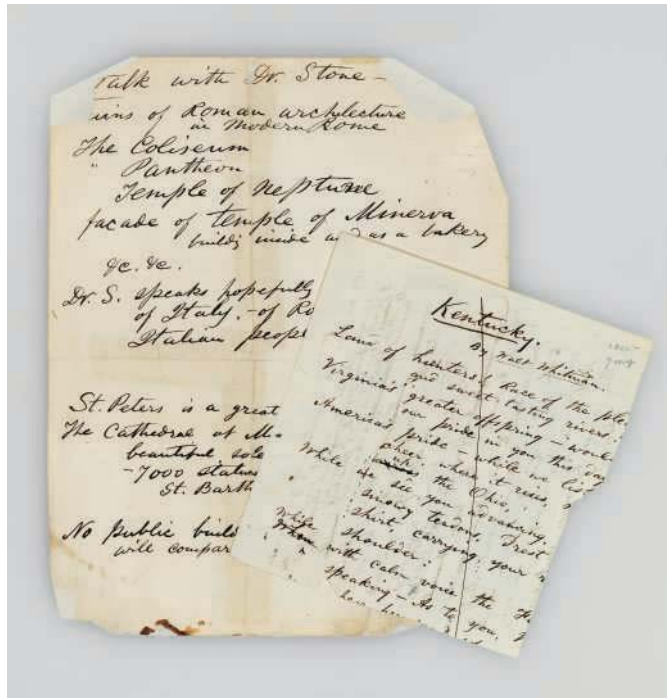 Talk with Dr. Stone –
ins of Roman architecture
in Modern Rome
The Coliseum
" Pantheon
Temple of Neptune
facade of temple of Minerva
inside as a bakery
&c. &c.
Dr. S. speaks hopefully
of Italy, – of Ro
Italian peop
St. Peters is a great
The Cathedral at M
beautiful
– 7000 statues
St. Barth
No public build
will compar
Kentucky.
By Walt Whitman.
Land of hunters! Race of the
and sweet-tasting rivers!
Virginia's greater offspring – would
our pride in you this day
America's pride – while we lis
cheer, where it runs
While up the Ohio,
we see you advancing,
sinewy tendons, drest
shirt carrying your
shoulder:
While
with calm voice the
speaking – As to you,